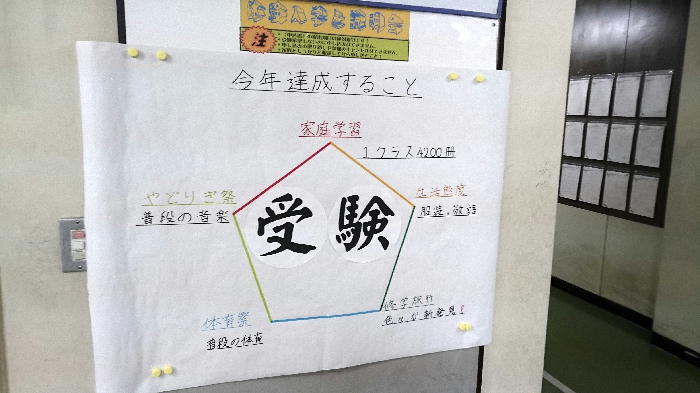 注
今年達成すること
家庭学習
1クラス4200冊
やどりぎ祭
普段の音楽
生活態度
服装。敬語
受験
体育祭
普段の体育
修学旅行
色々な新発見!